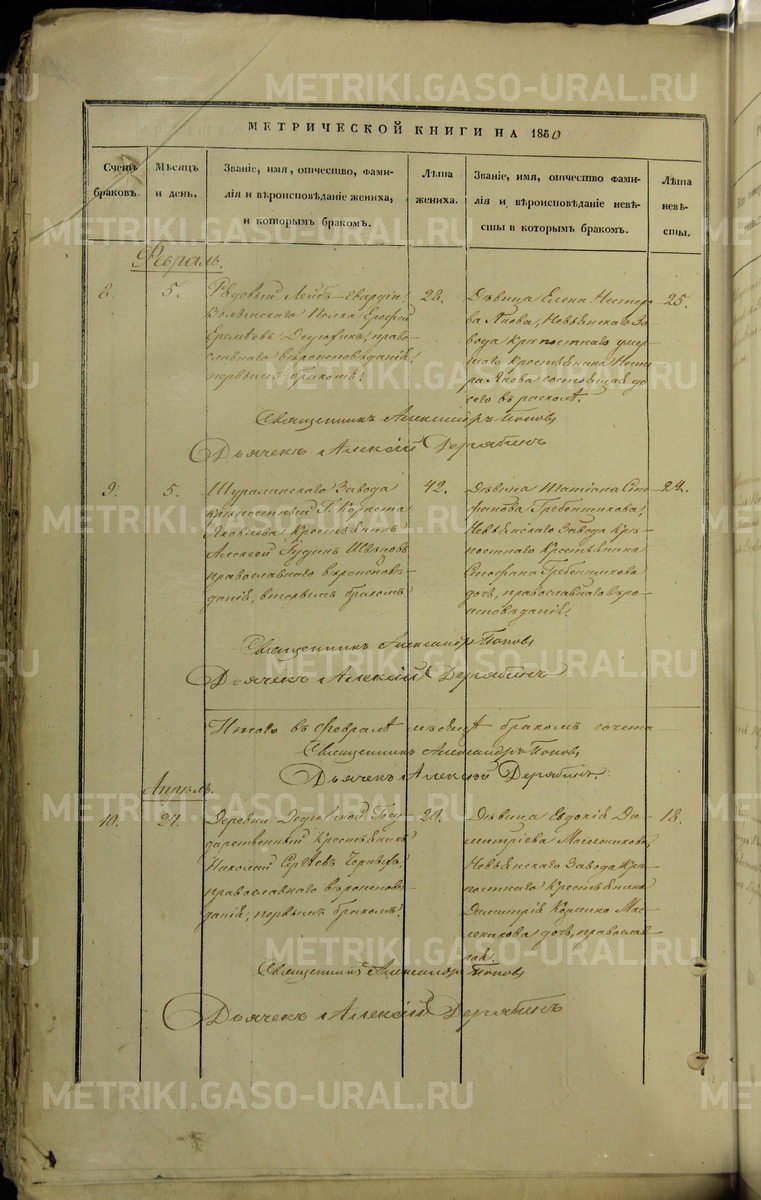 МЕТРИЧЕСКОЙ КНИГИ НА 1850
Счетъ браковъ.
Мѣсяцъ и день.
Званіе, имя, отчество, фами-
лія и вѣроисповѣданіе жениха,
и которымъ бракомъ.
Лѣта жениха.
Званіе, имя, отчество фами-
лія и вѣроисповѣданіе невѣ-
сты и которымъ бракомъ.
Лѣта невѣ-
сты.
Февраль.
8.
5.
Рядовый Лейбъ-Гвардіи
Волынскаго Полка Ерофей
Еремѣевъ право-
славнаго вѣроисповѣданія,
первымъ бракомъ.
28.
Дѣвица Елена Несте-
рова Невьянскаго За-
вода крѣпостнаго умер-
шаго крестьянина Несте-
ра состоявшая до
сего въ расколѣ.
25.
Священникъ Александръ Поповъ
Дьячекъ Алексій Дерябинъ
9.
5.
Шуралинскаго Завода
крѣпостный Г. Корнета
Яковлева крестьянинъ
Алексей Швецовъ
православнаго вѣроисповѣ-
данія, вторымъ бракомъ
42.
Дѣвица Татіана Сте-
фанова Гребенщикова,
Невьянскаго Завода крѣ-
постнаго крестьянина
Стефана Гребенщикова
дочь, православнаго вѣро-
исповѣданія.
24.
Священникъ Александръ Поповъ
Дьячекъ Алексій Дерябинъ
Итого въ Февралѣ мѣсяцѣ бракомъ сочета
Священникъ Александръ Поповъ
Дьячекъ Алексій Дерябинъ.
Апрѣль.
10.
Деревни Госу-
дарственный крестьянинъ
Николай Сергѣевъ
православнаго вѣроисповѣ-
данія, первымъ бракомъ.
20.
Дѣвица Евдокія Ди-
митріева Масленикова,
Невьянскаго Завода крѣ-
постнаго крестьянина
Димитрія Мас-
леникова дочь, православ-
ная.
18.
Священникъ Александръ Поповъ
Дьячекъ Алексій Дерябинъ
METRIKI.GASO-URAL.RU